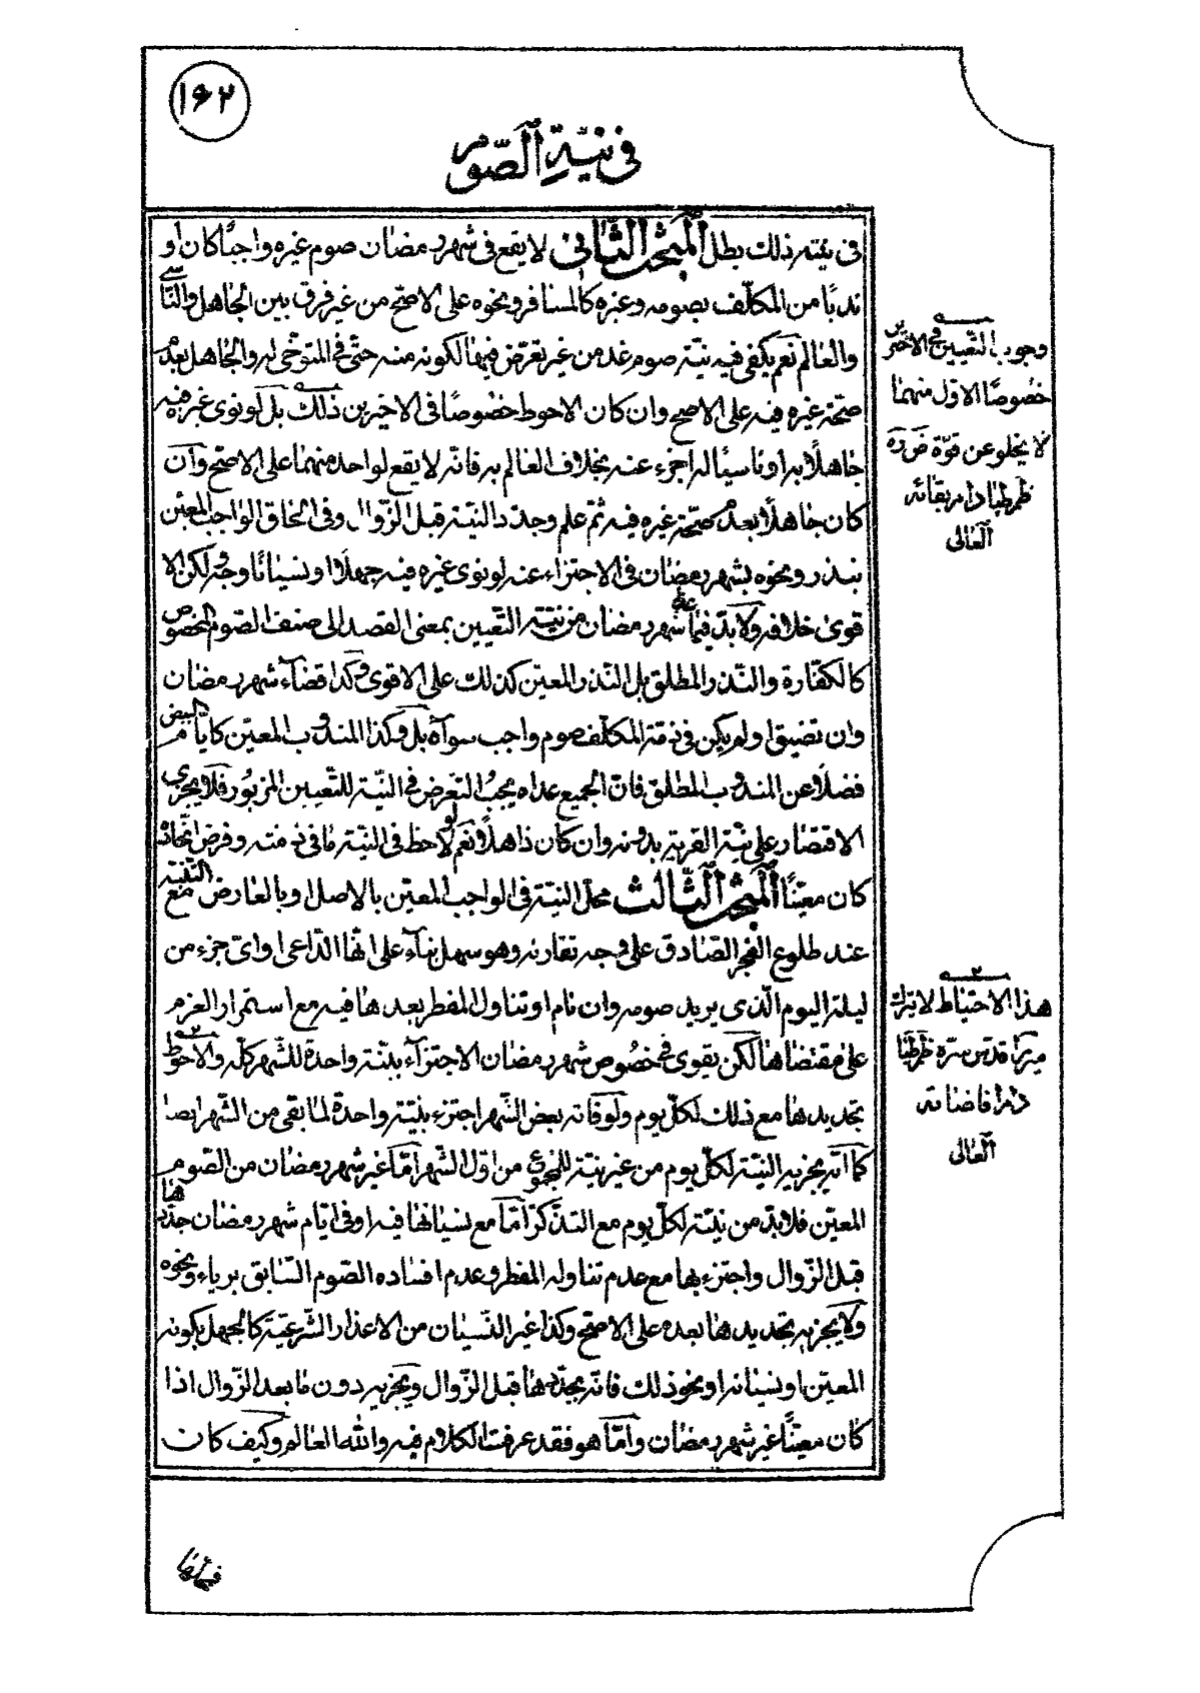 ١۶٢
في نيّة الصّوم
في نيّته ذلك بطل المبحث الثّاني لا يقع في شهر رمضان صوم غيره واجبًا كان او
ندبًا من المكلّف بصومه وغيره كالمسافر ونحوه على الاصحّ من غير فرق بين الجاهل والنّاسي
والعالم نعم يكفي فيه نيّة صوم غد من غير تعرّض فيها لكونه منه حتّى في المتوخّي له والجاهل بعدم
صحّة غيره فيه على الاصح وان كان الاحوط خصوصًا في الاخيرين ذلك بل لو نوى غيره فيه
جاهلًا به او ناسيًا له اجزء عنه بخلاف العالم به فانّه لا يقع لواحد منهما على الاصحّ وان
كان جاهلًا بعدم صحّة غيره فيه ثمّ علم وجدّد النيّة قبل الزّوال وفي الحاق الواجب المعيّن
بنذر ونحوه بشهر رمضان في الاجتزاء عنه لو نوى غيره فيه جهلًا او نسيانًا وجه لكن الا
قوى خلافه ولا بدّ فيما عدا شهر رمضان من نيّة التّعيين بمعنى القصد الى صنف الصّوم المخصوص
كالكفّارة والنّذر المطلق بل النّذر المعيّن كذلك على الاقوى وكذا قضاء شهر رمضان
وان تضيق او لم يكن في ذمّة المكلّف صوم واجب سواه بل وكذا المندوب المعيّن كايّام البيض
فضلًا عن المندوب المطلق فانّ الجميع عداه يجب التّعرض في النيّة للتّعيين المزبور فلا يجزي
الاقتصار على نيّة القربة بدونه وان كان ذاهلًا نعم لو لاحظ في النيّة ما في ذمّته وفرض اتّحاده
كان معيّنًا المبحث الثّالث محلّ النيّة في الواجب المعيّن بالاصل او بالعارض مع التثنيه
عند طلوع الفجر الصّادق على وجه تقارنه وهو سهل بناء على انّها الدّاعي او ايّ جزء من
ليلة اليوم الّذي يريد صومه وان نام او تناول المفطر بعدها فيه مع استمرار العزم
على مقتضاها لكن يقوى في خصوص شهر رمضان الاجتزاء بنيّة واحدة للشّهر كلّه والاحوط
تجديدها مع ذلك لكلّ يوم ولو فاته بعض الشّهر اجتزء بنيّة واحدة لما بقي من الشّهر ايضا
كما انّه يجزيه النيّة لكلّ يوم من غير نيّة للمجموع من اوّل الشّهر امّا غير شهر رمضان من الصّوم
المعيّن فلا بدّ من نيّته لكلّ يوم مع التذكّر امّا مع نسيانها فيه او في ايّام شهر رمضان جدّدها
قبل الزّوال واجتزء بها مع عدم تناوله المفطر وعدم افساده الصّوم السّابق برياء ونحوه
ولا يجزيه تجديدها بعده على الاصحّ وكذا غير النّسيان من الاعذار الشّرعيّة كالجهل بكونه
المعيّن او نسيانه او نحو ذلك فانّه يجدّدها قبل الزّوال ويجزيه دون ما بعد الزّوال اذا
كان معيّنًا غير شهر رمضان وامّا هو فقد عرفت الكلام فيه والله العالم وكيف كان
وجوب التّعيين في الاخيرين
خصوصًا الاوّل منهما
لا يخلو عن قوّة
ظم طبا دام بقائه
العالى
٢
هذا الاحتياط لا يترك
ميرزا قدّس سرّه ظم طبا
دام افاضاته
العالى